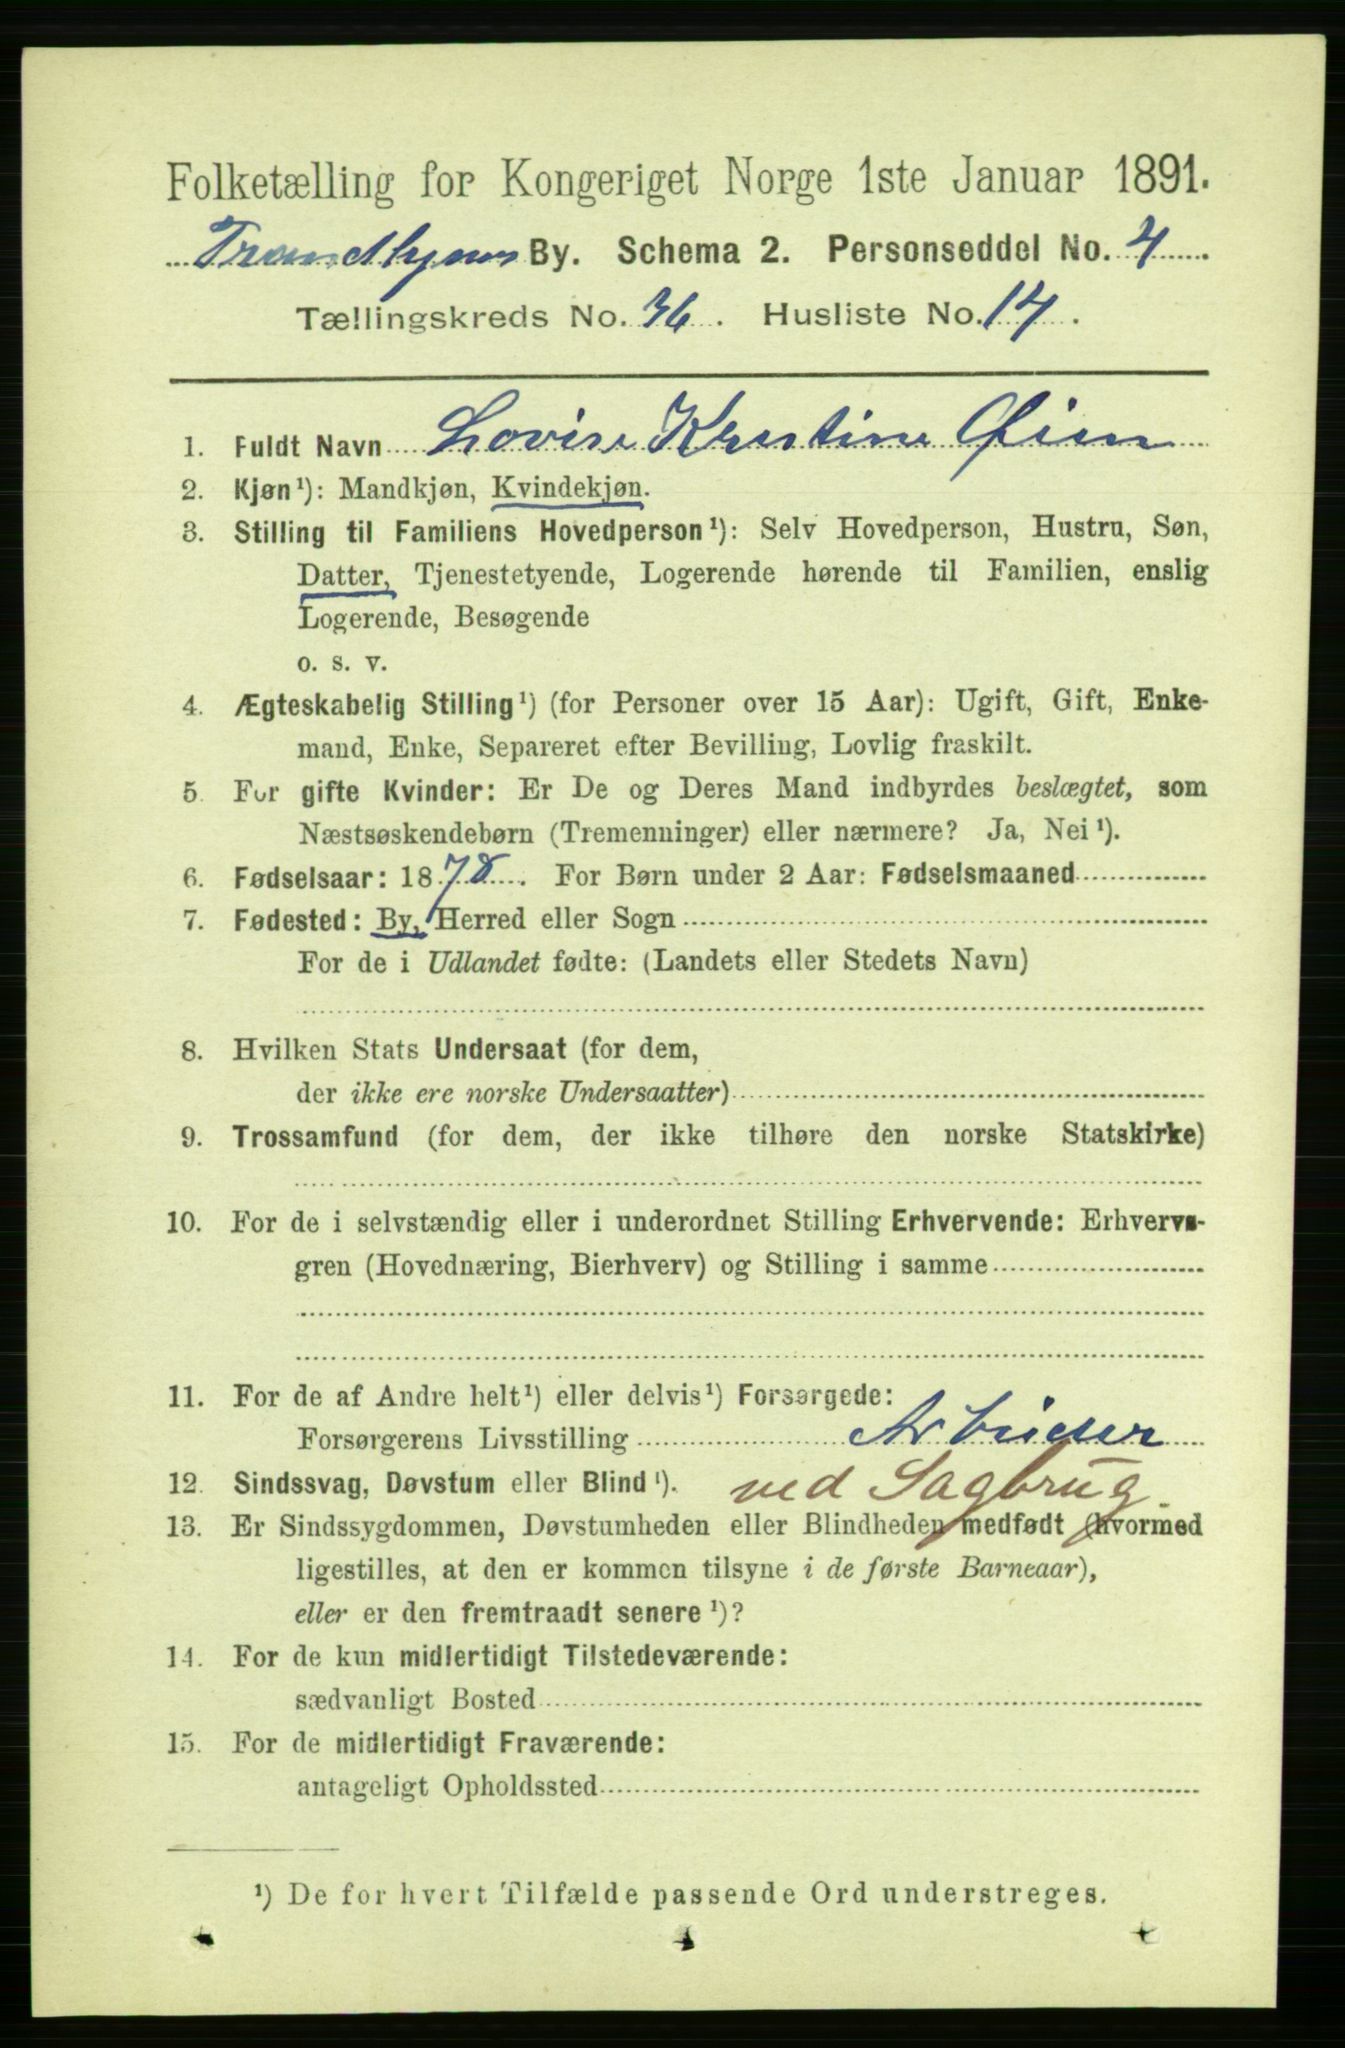 Folketælling for Kongeriget Norge 1ste Januar 1891.
Trondhjems By. Schema 2. Personseddel No. 4
Tællingskreds No. 36. Husliste No. 14.
1. Fuldt Navn Lovise Kristine Øien
2. Kjøn¹): Mandkjøn, Kvindekjøn.
3. Stilling til Familiens Hovedperson¹): Selv Hovedperson, Hustru, Søn,
Datter, Tjenestetyende, Logerende hørende til Familien, enslig
Logerende, Besøgende
o. s. v.
4. Ægteskabelig Stilling¹) (for Personer over 15 Aar): Ugift, Gift, Enke-
mand, Enke, Separeret efter Bevilling, Lovlig fraskilt.
5. For gifte Kvinder: Er De og Deres Mand indbyrdes beslægtet, som
Næstsøskendebørn (Tremenninger) eller nærmere? Ja, Nei¹).
6. Fødselsaar: 1878. For Børn under 2 Aar: Fødselsmaaned
7. Fødested: By, Herred eller Sogn
For de i Udlandet fødte: (Landets eller Stedets Navn)
8. Hvilken Stats Undersaat (for dem,
der ikke ere norske Undersaatter)
9. Trossamfund (for dem, der ikke tilhøre den norske Statskirke)
10. For de i selvstændig eller i underordnet Stilling Erhvervende: Erhvervs-
gren (Hovednæring, Bierhverv) og Stilling i samme
11. For de af Andre helt¹) eller delvis¹) Forsørgede:
Forsørgerens Livsstilling Arbeider
12. Sindssvag, Døvstum eller Blind¹). ved Sagbrug.
13. Er Sindssygdommen, Døvstumheden eller Blindheden medfødt (hvormed
ligestilles, at den er kommen tilsyne i de første Barneaar),
eller er den fremtraadt senere¹)?
14. For de kun midlertidigt Tilstedeværende:
sædvanligt Bosted
15. For de midlertidigt Fraværende:
antageligt Opholdssted
¹) De for hvert Tilfælde passende Ord understreges.